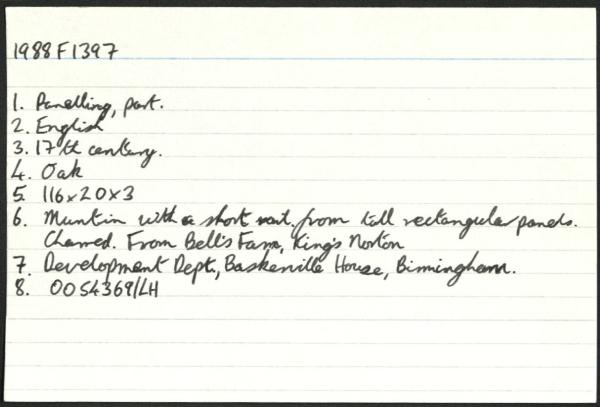 1988F1397
1. Panelling, part.
2. English
3. 17th century.
4. Oak
5 116x20x3
6. Muntin with a short rail from tall rectangular panels.
Charred. From Bell's Farm, King's Norton
7. Development Dept, Baskerville House, Birmingham.
8. 0054369/LH